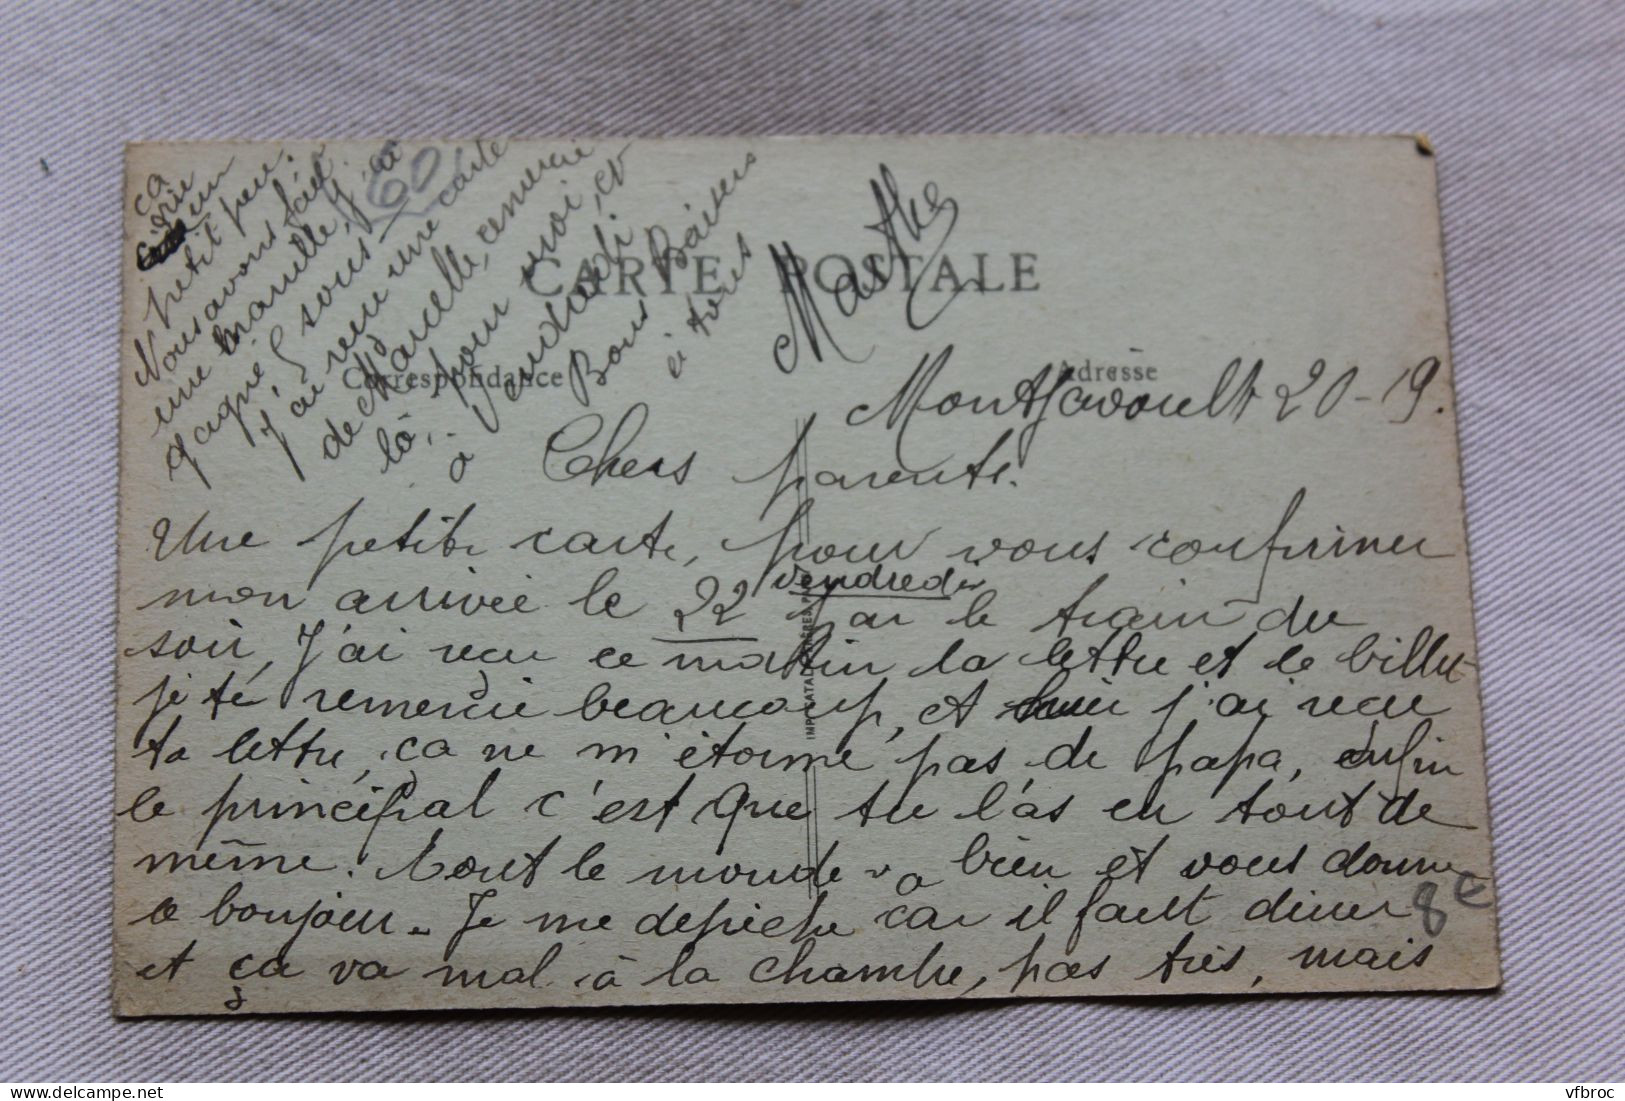 CARTE POSTALE
Correspondance
Adresse
Montjavoult 20-19.
Chers parents.
Une petite carte, pour vous confirmer
mon arrivée le 22 vendredi par le train du
soir, J'ai reçu ce matin la lettre et le billet
je te remercie beaucoup, et hier j'ai reçu
ta lettre, ça ne m'étonne pas de papa, enfin
le principal c'est que tu l'as eu tout de
même. Tout le monde va bien et vous donne
le bonjour. Je me dépêche car il faut diner
et ça va mal à la chambre, pas très, mais
ça
un
petit peu.
Nous avons fait
une manille, j'ai
gagné 6 sous
J'ai reçu une carte
de Marcelle, remercie
là, pour moi, et
à Vendredi
Bons Baisers
à tous
Marthe
IMP. CATALA FRÈRES PARIS
60
8€
vfbroc